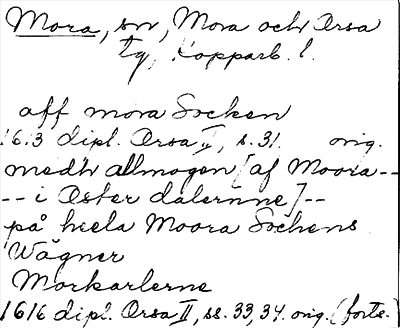 Mora, sn, Mora och Orsa
tg, Kopparb. l.
aff mora Socken
1613 dipl. Orsa II, s. 31. orig.
medh allmogen [af Moora--
-- i Öster dalernne]--
på heela Moora Sochens
Wägner
Morkarlerne
1616 dipl. Orsa II, ss. 33, 34. orig. (forts.)